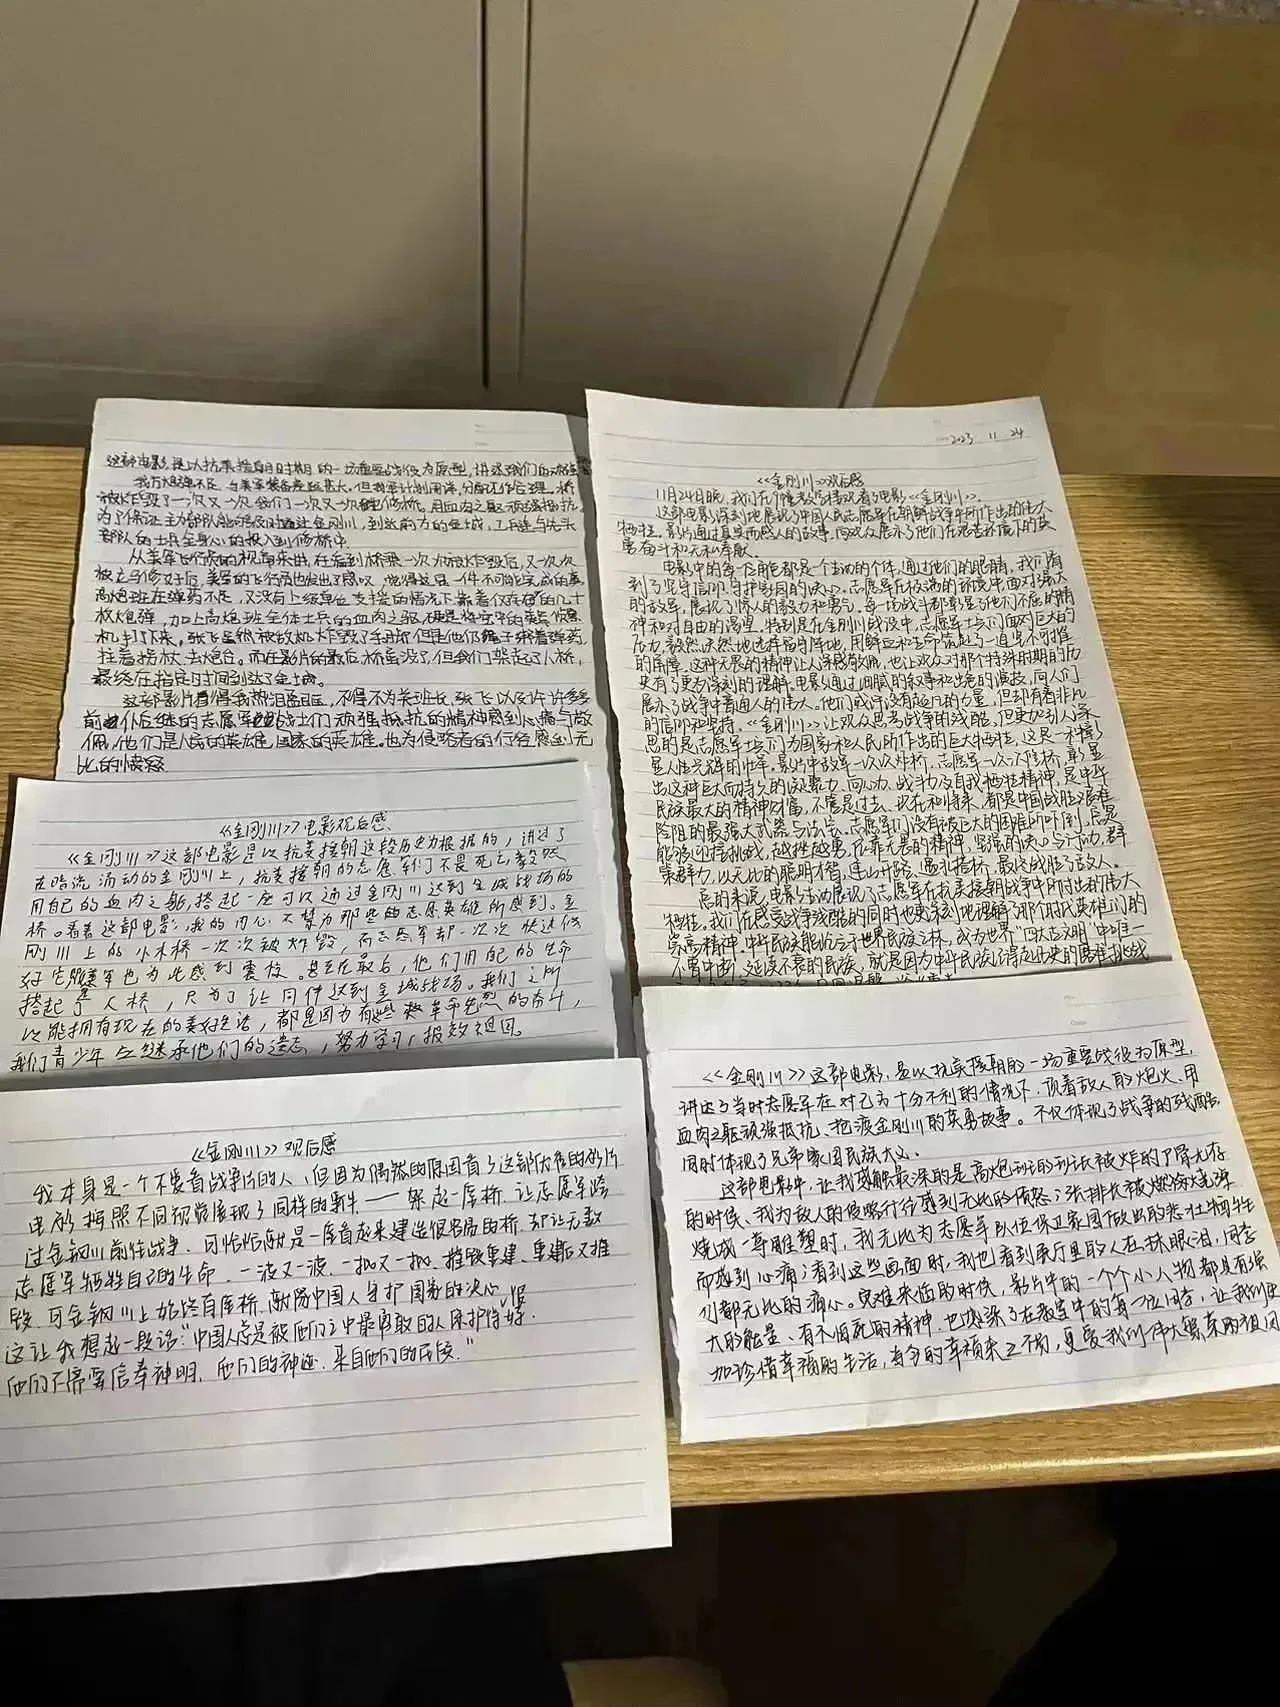 这部电影是以抗美援朝时期的一场重要战役为原型,讲述我们的
我方炮弹不足,与美军装备差距甚大。但我军计划周详,分配运作合理。桥
被炸毁了一次又一次,我们一次又一次地修桥,用血肉之躯顽强抵抗。
为了保证主力部队能够及时通过金刚川,到达前方的金城,工兵连与先头
部队的士兵全身心的投入到修桥中
从美军飞行员的视角来讲,在看到桥梁一次次被炸毁后,又一次次
被立马修好后,美军的飞行员也发出了感叹,觉得这是一件不可能完成的事
高炮班在弹药不足,又没有上级单位支援的情况下靠着仅存在的几十
枚炮弹,加上高炮班全体士兵的血肉之躯,硬是将空中的美军
机打下来。张飞虽然被敌机炸毁了手脚但是他仍绳子绑着弹药
拄着拐杖去炮台。而在影片的最后,桥虽没了,但我们架起了人桥,
最终在指定时间到达了金城。
这部影片看得我热泪盈眶,不得不为关班长、张飞以及许许多多
前仆后继的志愿军战士们顽强抵抗的精神感到心痛与敬
佩,他们是人民的英雄,国家的英雄。也为侵略者的行径感到无
比的愤怒
《金刚川》电影观后感
《金刚川》这部电影是以抗美援朝这段历史为根据的,讲述了
在暗流涌动的金刚川上,抗美援朝的志愿军们不畏死亡,毅然
用自己的血肉之躯,搭起一座可以通过金刚川达到金城战场的
桥。看着这部电影,我的内心不禁为那些志愿英雄所感到。金
刚川上的小木桥一次次被炸毁,而志愿军却一次次快速修
好它,美军也为此感到震惊。甚至在最后,他们用自己的生命
搭起了人桥,只为了让同伴达到金城战场。我们之所
以能拥有现在的美好生活,都是因为有这些革命先烈的奋斗,
我们青少年应继承他们的遗志,努力学习,报效祖国。
《金刚川》观后感
我本身是一个不爱看战争片的人,但因为偶然的原因看了这部优秀的影片
电影按照不同视觉展现了同样的事件——架起一座桥,让志愿军跨
过金钢川前往战争,可恰恰就是一座看起来建造很容易的桥,却让无数
志愿军牺牲自己的生命,一波又一波,一批又一批,摧毁重建,重建后又摧
毁,可金钢川上始终有座桥,献给中国人守护国家的决心,
这让我想起一段话:“中国人总是被他们之中最勇敢的人保护得很好.
他们不需要信奉神明,他们的神迹,来自他们的民族.”
2023 11 24
《金刚川》观后感
11月24日晚,我们在个信息教室观看了电影《金刚川》。
这部电影深刻地展现了中国人民志愿军在朝鲜战争中所作出的伟大
牺牲。影片通过真实而感人的故事,向观众展示了他们在艰苦环境下的英
勇奋斗和无私奉献。
电影中的每一个角色都是一个生动的个体,通过他们的眼睛,我们看
到了坚守信仰、守护家园的决心。志愿军在极端的环境中面对强大
的敌军,展现了惊人的毅力和勇气。每一场战斗都彰显了他们不屈的精
神和对自由的渴望。特别是在金刚川战役中,志愿军士兵们面对巨大的
压力,毅然决然地选择留守阵地,用鲜血和生命筑起了一道坚不可摧
的屏障。这种无畏的精神让人深感敬佩,也让观众对那个特殊时期的历
史有了更为深刻的理解。电影通过细腻的叙事和出色的演技,向人们
展示了战争中普通人的伟大。他们或许没有超凡的力量,但却有着非凡
的信仰和坚持。《金刚川》让观众思考战争的残酷,但更加引人深
思的是志愿军士兵们为国家和人民所作出的巨大牺牲,这是一种彰
显人性光辉的壮举。影片中敌军一次次炸桥,志愿军一次次修桥,彰显
出这种巨大而持久的凝聚力、向心力、战斗力及自我牺牲精神,是中华
民族最大的精神财富,不管是过去、现在和将来,都是中国战胜艰难
险阻的最强大武器与法宝。志愿军们没有被巨大的困难所吓倒,总是
能够迎接挑战,越挫越勇,依靠无畏的精神,坚强的决心与行动,群
策群力,以无比的聪明才智,逢山开路,遇水搭桥,最终战胜了敌人。
总的来说,电影生动展现了志愿军在抗美援朝战争中所付出的伟大
牺牲。我们在感受战争残酷的同时也更深刻地理解了那个时代英雄们的
崇高精神。中华民族能屹立于世界民族之林,成为世界“四大古文明”中唯一
不曾中断、延续不衰的民族,就是因为中华民族经得起历史的磨难挑战
《金刚川》这部电影,是以抗美援朝的一场重要战役为原型,
讲述了当时志愿军在对己方十分不利的情况下,顶着敌人的炮火、用
血肉之躯顽强抵抗、抢渡金刚川的英勇故事。不仅体现了战争的残酷,
同时体现了兄弟家国民族大义。
这部电影中,让我感触最深的是高炮班的班长被炸的尸骨无存
的时候、我为敌人的侵略行径感到无比的愤怒;张排长被燃烧
烧成一尊雕塑时,我无比为志愿军队伍保卫家园做出的悲壮牺牲
而感到心痛;看到这些画面时,我也看到展厅里的人在抹眼泪,同学
们都无比的痛心。灾难来临的时候,影片中的一个个小人物都具有强
大的能量、有不怕死的精神,也感染了在教室中的每一位同学,让我们更
加珍惜幸福的生活,当今的幸福来之不易,更爱我们伟大繁荣的祖国